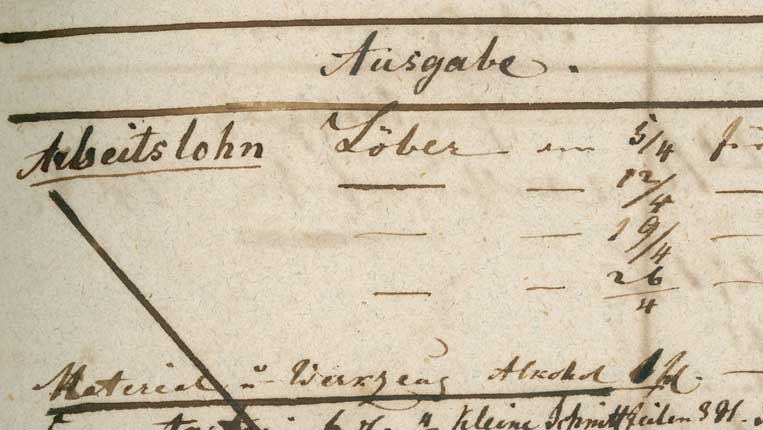 Ausgabe.
Arbeitslohn Löber am 5/4 für
— — 12/4 —
— — 19/4 —
— — 26/4 —
Material u Werkzeug Alkohol 1
6 " kleine Schnittfeilen 3